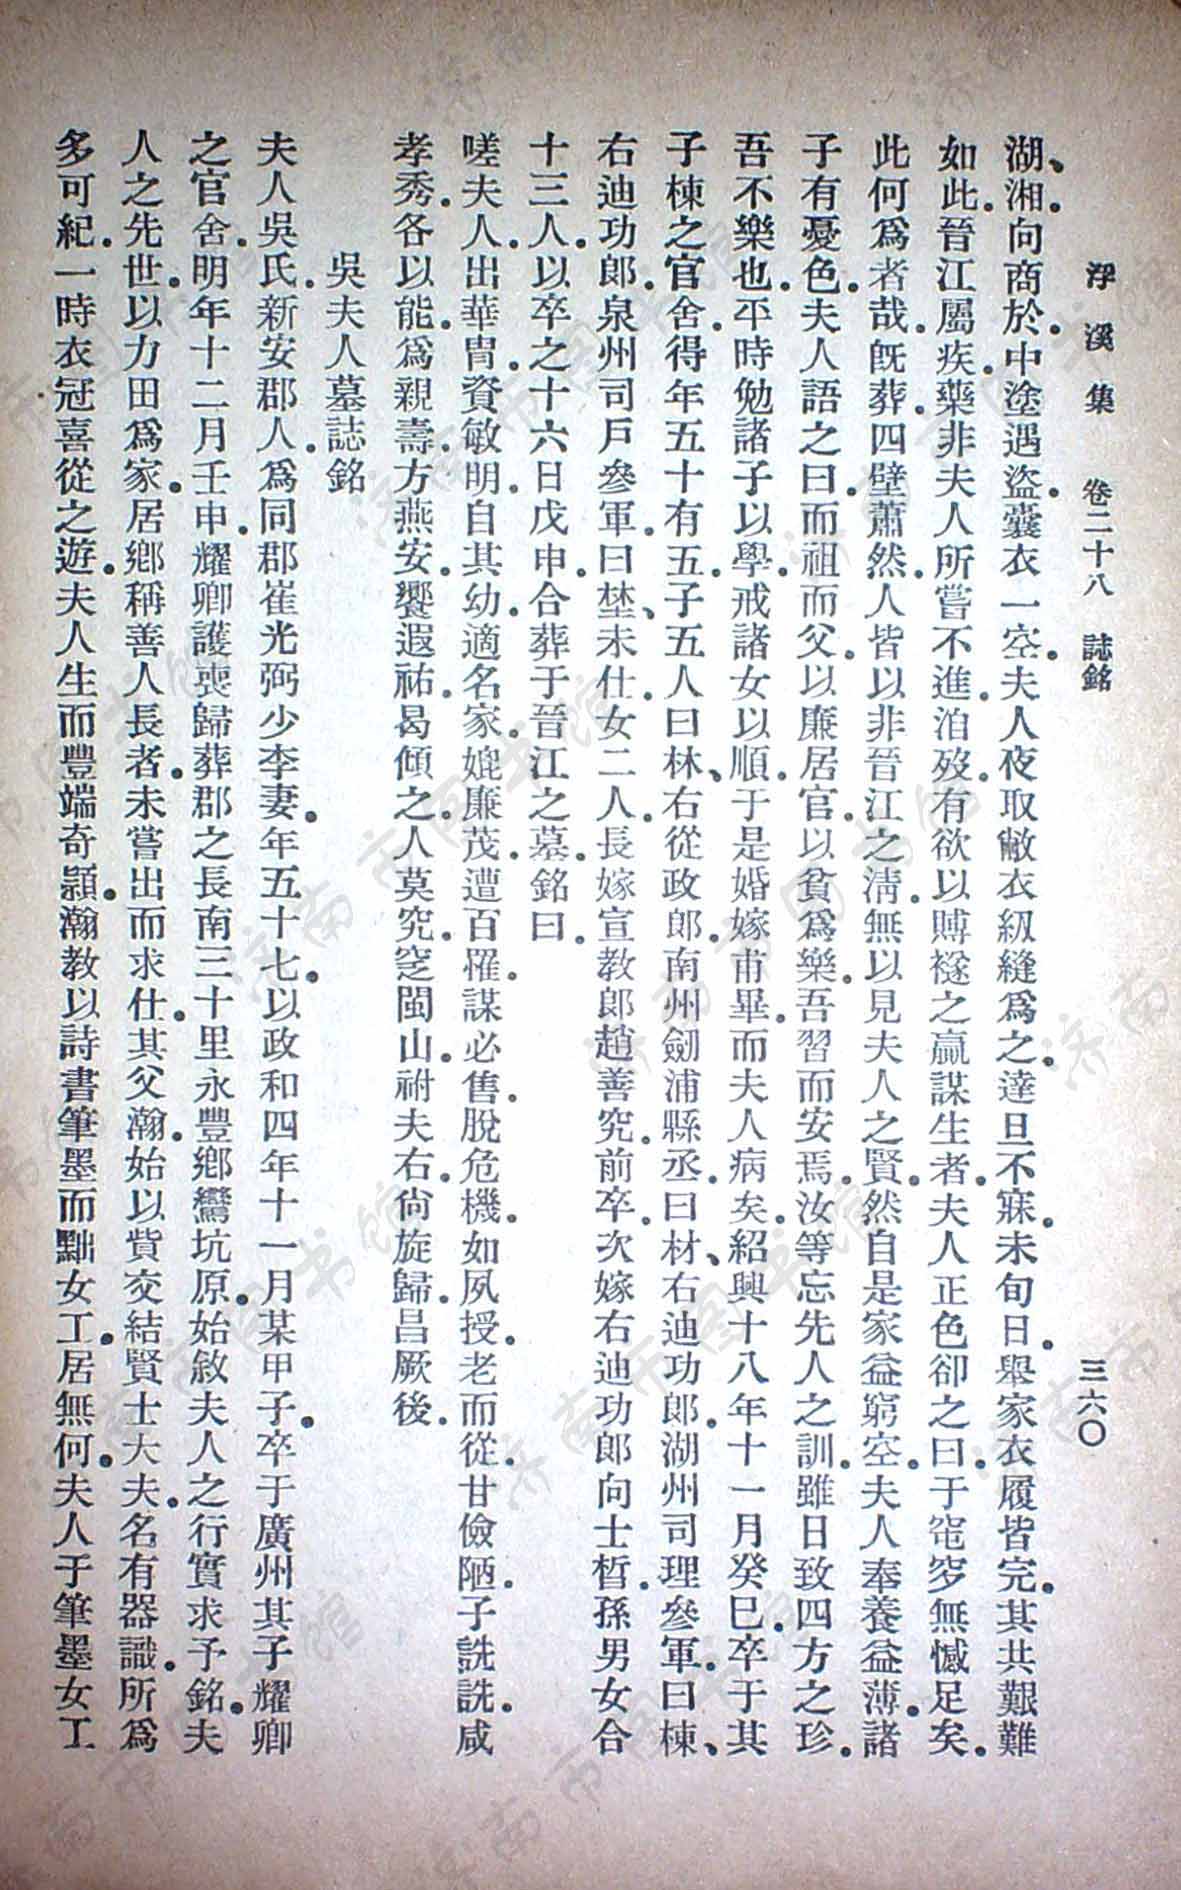 浮溪集 卷二十八 誌銘 三六〇
湖、湘。向商於。中塗遇盜。囊衣一空。夫人夜取敝衣紉縫爲之。達旦不寐。未旬日。舉家衣履皆完。其共艱難
如此。晉江屬疾。藥非夫人所嘗不進。洎歿。有欲以賻襚之贏謀生者。夫人正色卻之曰。于窀穸無憾足矣。
此何爲者哉。旣葬。四壁蕭然。人皆以非晉江之淸。無以見夫人之賢。然自是家益窮空。夫人奉養益薄。諸
子有憂色。夫人語之曰。而祖而父。以廉居官。以貧爲樂。吾習而安焉。汝等忘先人之訓。雖日致四方之珍。
吾不樂也。平時勉諸子以學。戒諸女以順。于是婚嫁甫畢。而夫人病矣。紹興十八年十一月癸巳。卒于其
子棟之官舍。得年五十有五。子五人。曰林、右從政郎。南州劒浦縣丞。曰材、右迪功郎。湖州司理參軍。曰棟、
右迪功郎。泉州司戶參軍。曰埜、未仕。女二人。長嫁宣教郎趙善究。前卒。次嫁右迪功郎向士晳。孫男女合
十三人。以卒之十六日戊申。合葬于晉江之墓。銘曰。
嗟夫人。出華胄。資敏明。自其幼。適名家。媲廉茂。遭百罹。謀必售。脫危機。如夙授。老而從。甘儉陋。子詵詵。咸
孝秀。各以能。爲親壽。方燕安。饗遐祐。曷傾之。人莫究。窆閩山。祔夫右。尙旋歸。昌厥後。
吳夫人墓誌銘
夫人吳氏。新安郡人。爲同郡崔光弼少李妻。年五十七。以政和四年十一月某甲子。卒于廣州其子耀卿
之官舍。明年十二月壬申。耀卿護喪歸葬郡之長南三十里永豐鄉鸞坑原。始敘夫人之行實求予銘。夫
人之先世。以力田爲家。居鄉稱善人長者。未嘗出而求仕。其父瀚。始以貲交結賢士大夫。名有器識。所爲
多可紀。一時衣冠喜從之遊。夫人生而豐端奇穎。瀚教以詩書筆墨而黜女工。居無何。夫人于筆墨女工